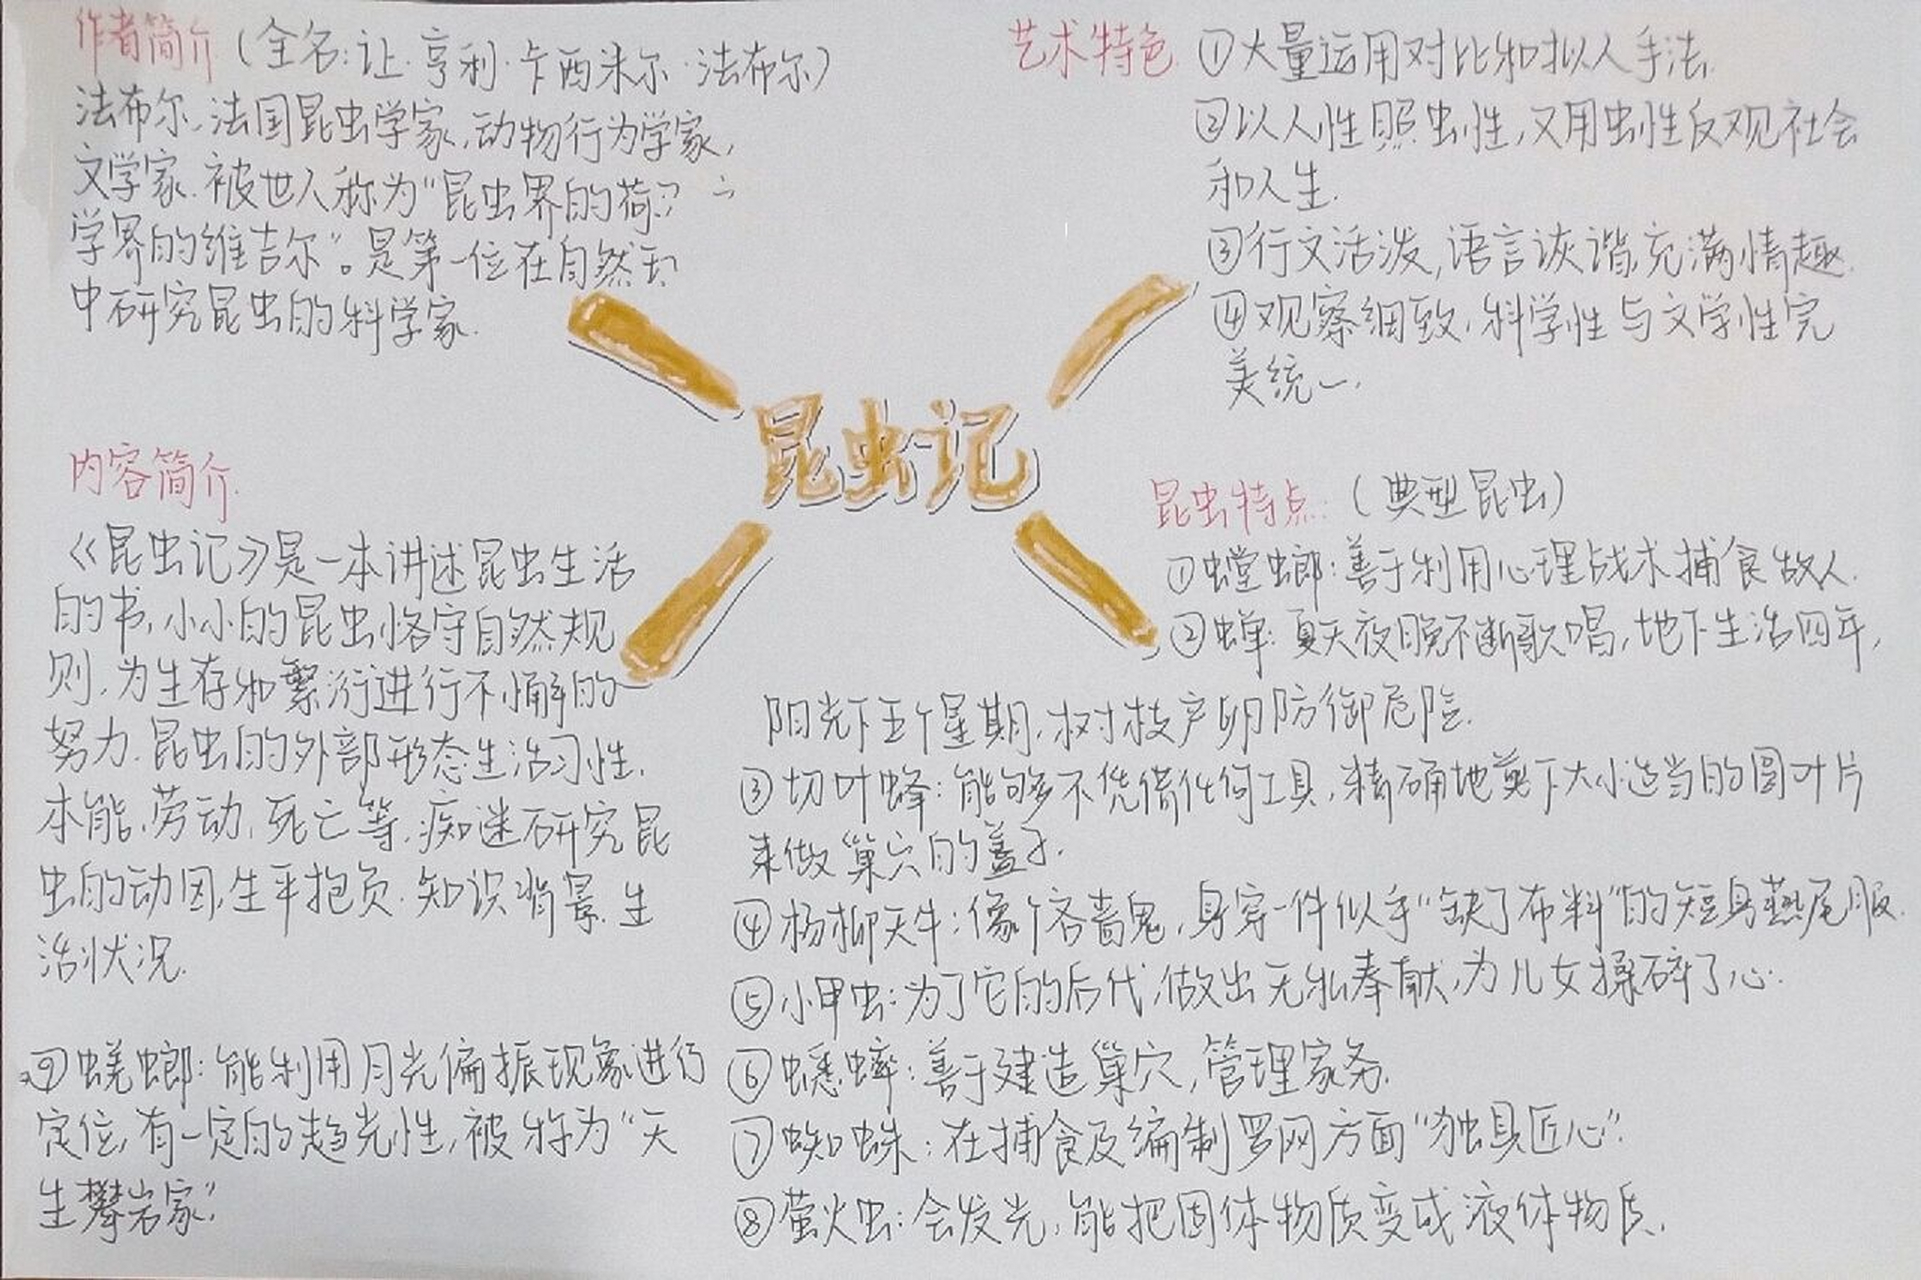 作者简介（全名:让·亨利·卡西米尔·法布尔）
法布尔,法国昆虫学家,动物行为学家,
文学家.被世人称为“昆虫界的荷
学界的维吉尔”。是第一位在自然
中研究昆虫的科学家.
艺术特色 ①大量运用对比和拟人手法.
②以人性照虫性,又用虫性反观社会
和人生.
③行文活泼,语言诙谐,充满情趣.
④观察细致,科学性与文学性完
美统一.
昆虫记
内容简介.
《昆虫记》是一本讲述昆虫生活
的书,小小的昆虫恪守自然规
则,为生存和繁衍进行不懈的
努力.昆虫的外部形态生活习性.
本能,劳动,死亡等.痴迷研究昆
虫的动因,生平抱负.知识背景.生
活状况.
昆虫特点:（典型昆虫）
①螳螂:善于利用心理战术捕食敌人.
②蝉:夏天夜晚不断歌唱,地下生活四年,
阳光下五个星期,树枝产卵防御危险.
③切叶蜂:能够不凭借任何工具,精确地剪下大小适当的圆叶片
来做巢穴的盖子.
④杨柳天牛:像个吝啬鬼,身穿一件似乎“缺了布料”的短身燕尾服.
⑤小甲虫:为了它的后代,做出无私奉献,为儿女操碎了心.
⑥蟋蟀:善于建造巢穴,管理家务.
⑦蜘蛛:在捕食及编制罗网方面“独具匠心”.
⑧萤火虫:会发光,能把固体物质变成液体物质.
⑨蜣螂:能利用月光偏振现象进行
定位,有一定的趋光性,被称为“天
生攀岩家”.